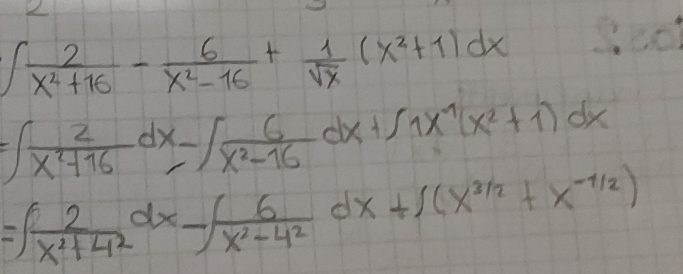 ∫ 2/(x²+16) - 6/(x²-16) + 1/√x (x²+1) dx
= ∫ 2/(x²+16) dx - ∫ 6/(x²-16) dx + ∫ 1x⁻¹(x²+1) dx
= ∫ 2/(x²+4²) dx - ∫ 6/(x²-4²) dx + ∫(x^3/2 + x^-1/2)